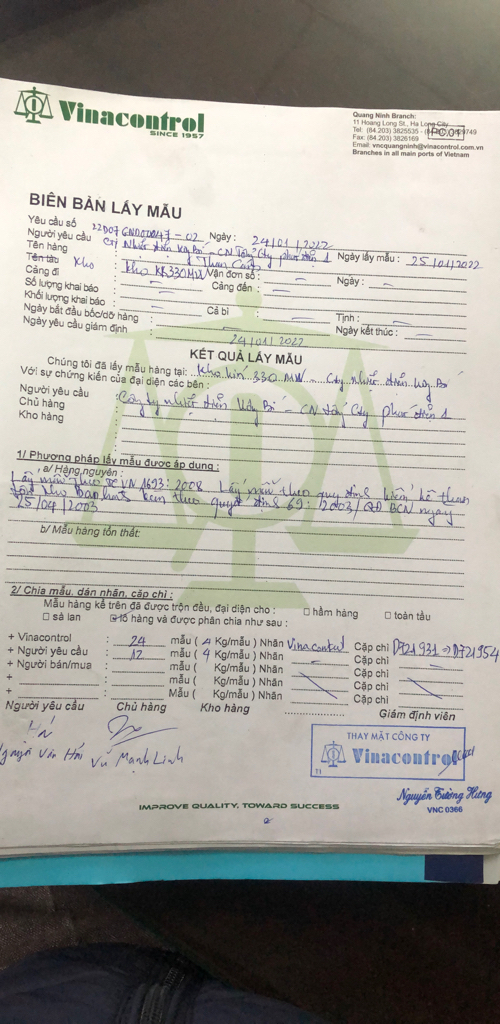 Vinacontrol
SINCE 1957
Quang Ninh Branch:
11 Hoang Long St., Ha Long City
Tel: (84.203) 3825535 -
PC.01
Fax: (84.203) 3826169
Email: vncquangninh@vinacontrol.com.vn
Branches in all main ports of Vietnam
BIÊN BẢN LẤY MẪU
Yêu cầu số 22D07GND00047-02 Ngày : 24/01/2022
Người yêu cầu Cty Nhiệt điện Uông Bí - CN Tổng Cty phát điện 1
Tên hàng : Than Cám Ngày lấy mẫu : 25/01/2022
Tên tàu Kho : Kho Kín 330MW Vận đơn số : Ngày :
Cảng đi : Cảng đến :
Số lượng khai báo :
Khối lượng khai báo : Cả bì : Tịnh :
Ngày bắt đầu bốc/dỡ hàng : Ngày kết thúc :
Ngày yêu cầu giám định : 24/01/2022
KẾT QUẢ LẤY MẪU
Chúng tôi đã lấy mẫu hàng tại : Kho kín 330 MW Cty nhiệt điện Uông Bí
Với sự chứng kiến của đại diện các bên :
Người yêu cầu : Công ty nhiệt điện Uông Bí - CN tổng Cty phát điện 1
Chủ hàng :
Kho hàng :
1/ Phương pháp lấy mẫu được áp dụng :
a/ Hàng nguyên :
Lấy mẫu theo TCVN 1693: 2008 Lấy mẫu theo quy định kiểm kê than
tồn kho ban hành kèm theo quyết định 69: 2003/QĐ BCN ngày
25/04/2003
b/ Mẫu hàng tổn thất:
2/ Chia mẫu, dán nhãn, cặp chì :
Mẫu hàng kể trên đã được trộn đều, đại diện cho : hầm hàng toàn tầu
sà lan lô hàng và được phân chia như sau :
+ Vinacontrol : 24 mẫu ( 4 Kg/mẫu ) Nhãn Vinacontrol Cặp chì D721931 => D721954
+ Người yêu cầu : 12 mẫu ( 4 Kg/mẫu ) Nhãn Cặp chì
+ Người bán/mua : mẫu ( Kg/mẫu ) Nhãn Cặp chì
+ : mẫu ( Kg/mẫu ) Nhãn Cặp chì
+ : Mẫu ( Kg/mẫu ) Nhãn Cặp chì
Người yêu cầu Chủ hàng Kho hàng Giám định viên
Vũ Mạnh Linh
THAY MẶT CÔNG TY
Vinacontrol
T1
Nguyễn Tường Hưng
VNC 0366
IMPROVE QUALITY, TOWARD SUCCESS